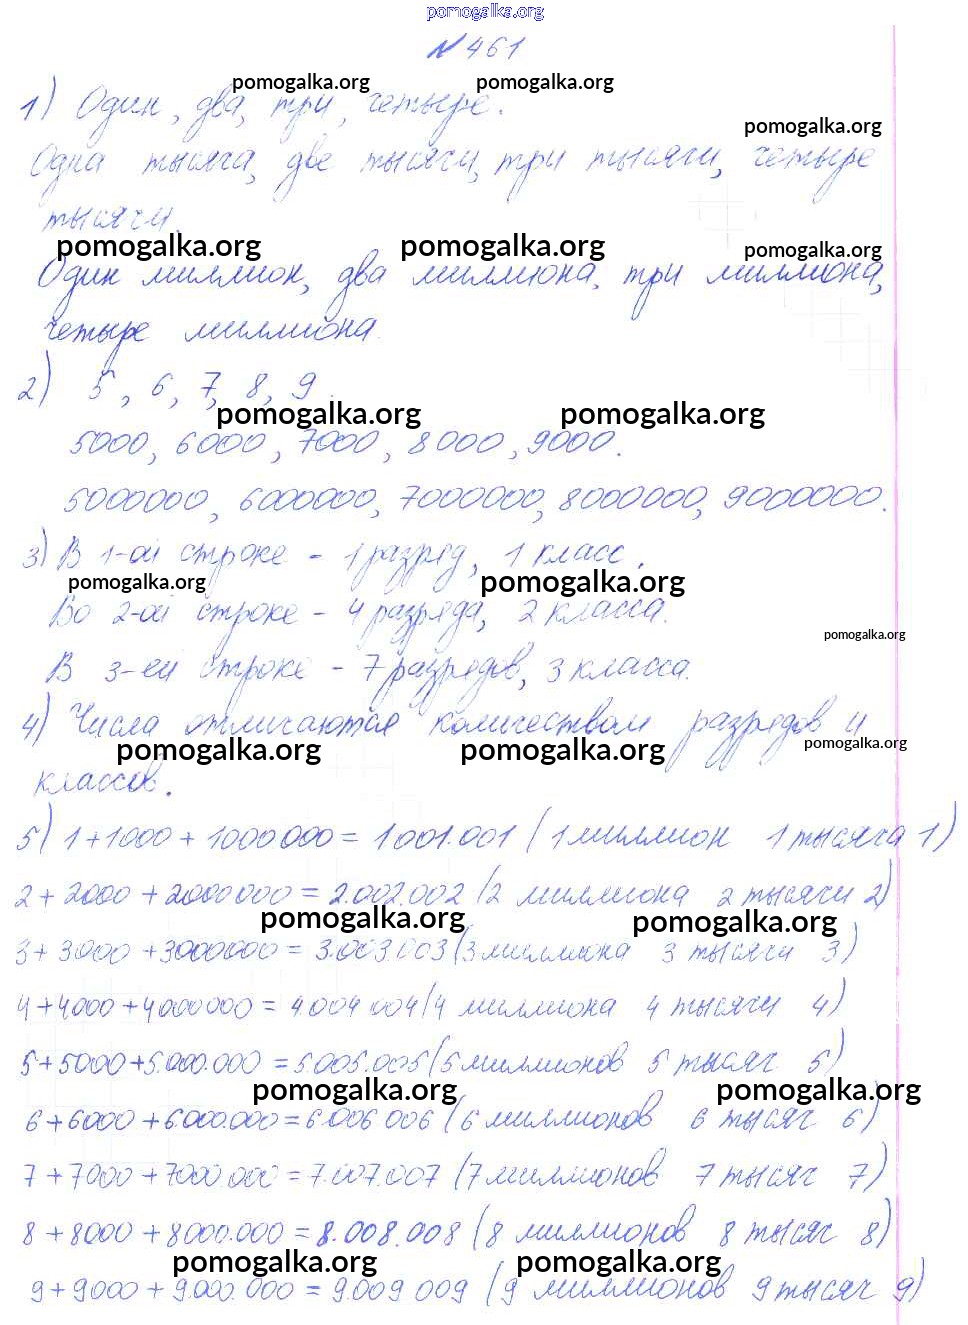 pomogalka.org
№ 461
pomogalka.org pomogalka.org
1) Один, два, три, четыре.
pomogalka.org
Одна тысяча, две тысячи, три тысячи, четыре
тысячи.
pomogalka.org pomogalka.org pomogalka.org
Один миллион, два миллиона, три миллиона,
четыре миллиона.
2) 5, 6, 7, 8, 9.
pomogalka.org pomogalka.org
5000, 6000, 7000, 8000, 9000.
5000000, 6000000, 7000000, 8000000, 9000000.
3) В 1-ой строке - 1 разряд, 1 класс.
pomogalka.org pomogalka.org
Во 2-ой строке - 4 разряда, 2 класса.
pomogalka.org
В 3-ей строке - 7 разрядов, 3 класса.
4) Числа отличаются количеством разрядов и
pomogalka.org pomogalka.org pomogalka.org
классов.
5) 1+1000 + 1000 000 = 1 001.001 (1 миллион 1 тысяча 1)
2 + 2000 + 2000 000 = 2.002.002 (2 миллиона 2 тысячи 2)
pomogalka.org pomogalka.org
3+ 3.000 +3000000 = 3.003.003 (3 миллиона 3 тысячи 3)
4+4000 +4000 000 = 4.004 004 (4 миллиона 4 тысячи 4)
5+5000+5.000.000 = 5.005.005 (5 миллионов 5 тысяч 5)
pomogalka.org pomogalka.org
6+6000 +6.000.000 = 6.006 006 (6 миллионов 6 тысяч 6)
7 +7000 +7000.000 = 7.007.007 (7 миллионов 7 тысяч 7)
8 +8000 + 8000.000 = 8.008.008 (8 миллионов 8 тысяч 8)
pomogalka.org pomogalka.org
9+9000 + 9.000.000 = 9.009 009 (9 миллионов 9 тысяч 9)